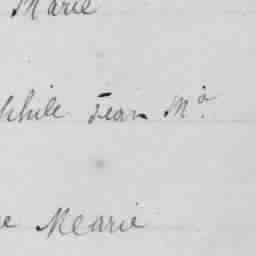 Marie
phile Jean Mª
e Marie